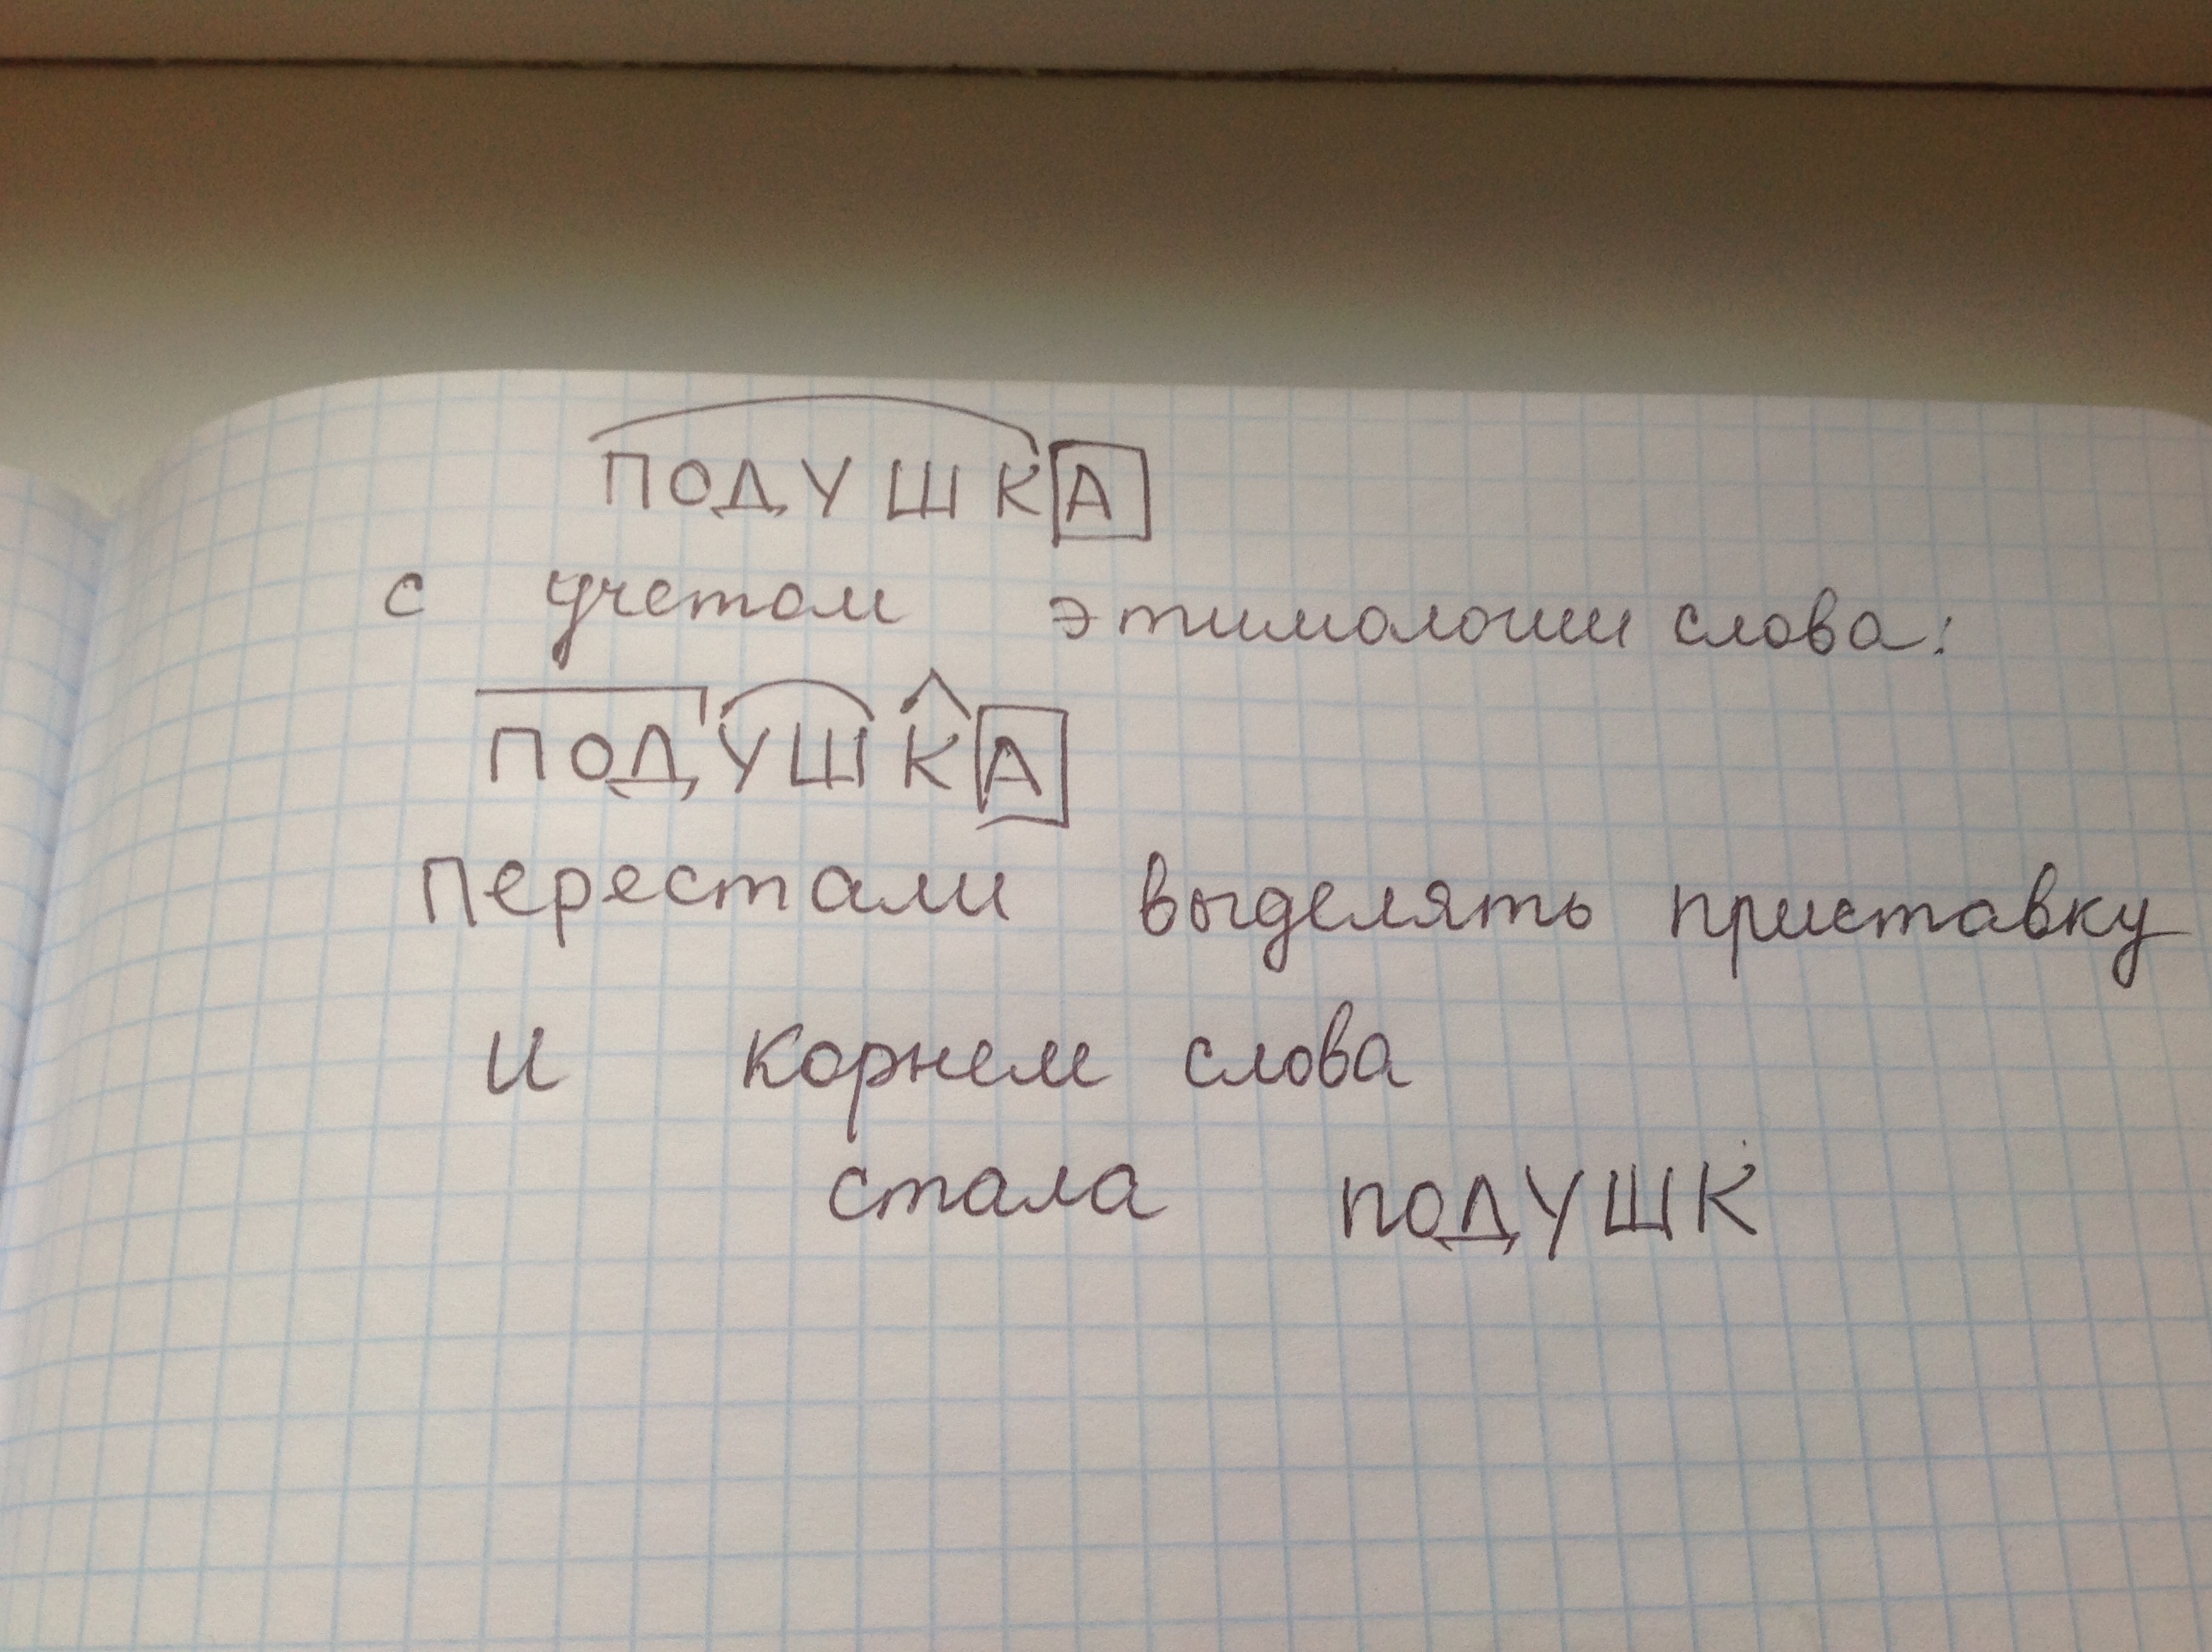 ПОДУШКА
с учетом этимологии слова:
ПОДУШКА
Перестали выделять приставку
и корнем слова
стала ПОДУШК